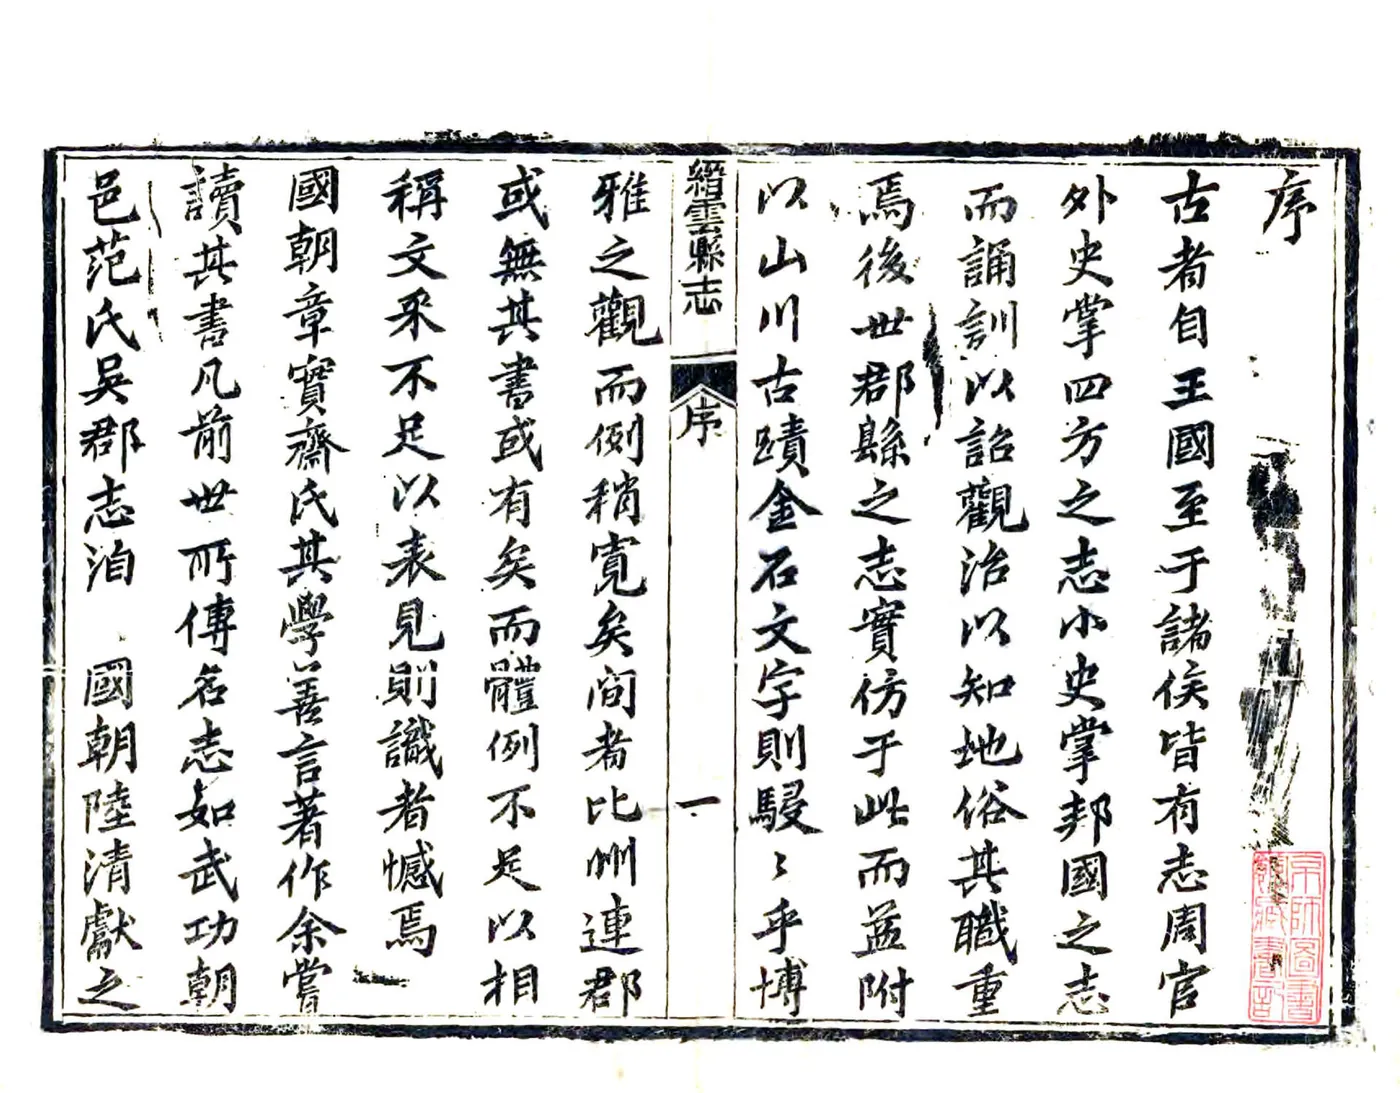 序
古者自王國至于諸侯皆有志周官
外史掌四方之志小史掌邦國之志
而誦訓以詔觀治以知地俗其職重
焉後世郡縣之志實仿于此而益附
以山川古蹟金石文字則駸〻乎博
縉雲縣志
序
一
雅之觀而例稍寬矣間者比州連郡
或無其書或有矣而體例不足以相
稱文采不足以表見則識者憾焉
國朝章實齋氏其學善言著作余嘗
讀其書凡前世所傳名志如武功朝
邑范氏吳郡志洎 國朝陸清獻之
京師圖書
館藏書記